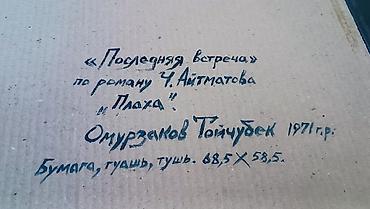 «Последняя встреча»
по роману Ч. Айтматова
„Плаха".
Омурзаков Тойчубек 1971 г.р.
Бумага, гуашь, тушь. 68,5 X 58,5.